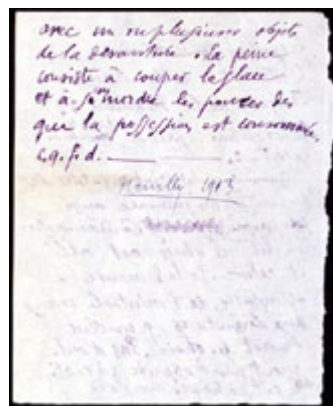 avec un ou plusieurs objets
de la devanture. La peine
consiste à couper la glace
et à s'en mordre les pouces dès
que la possession est consommée.
c.q.f.d. ———
Neuilly 1913